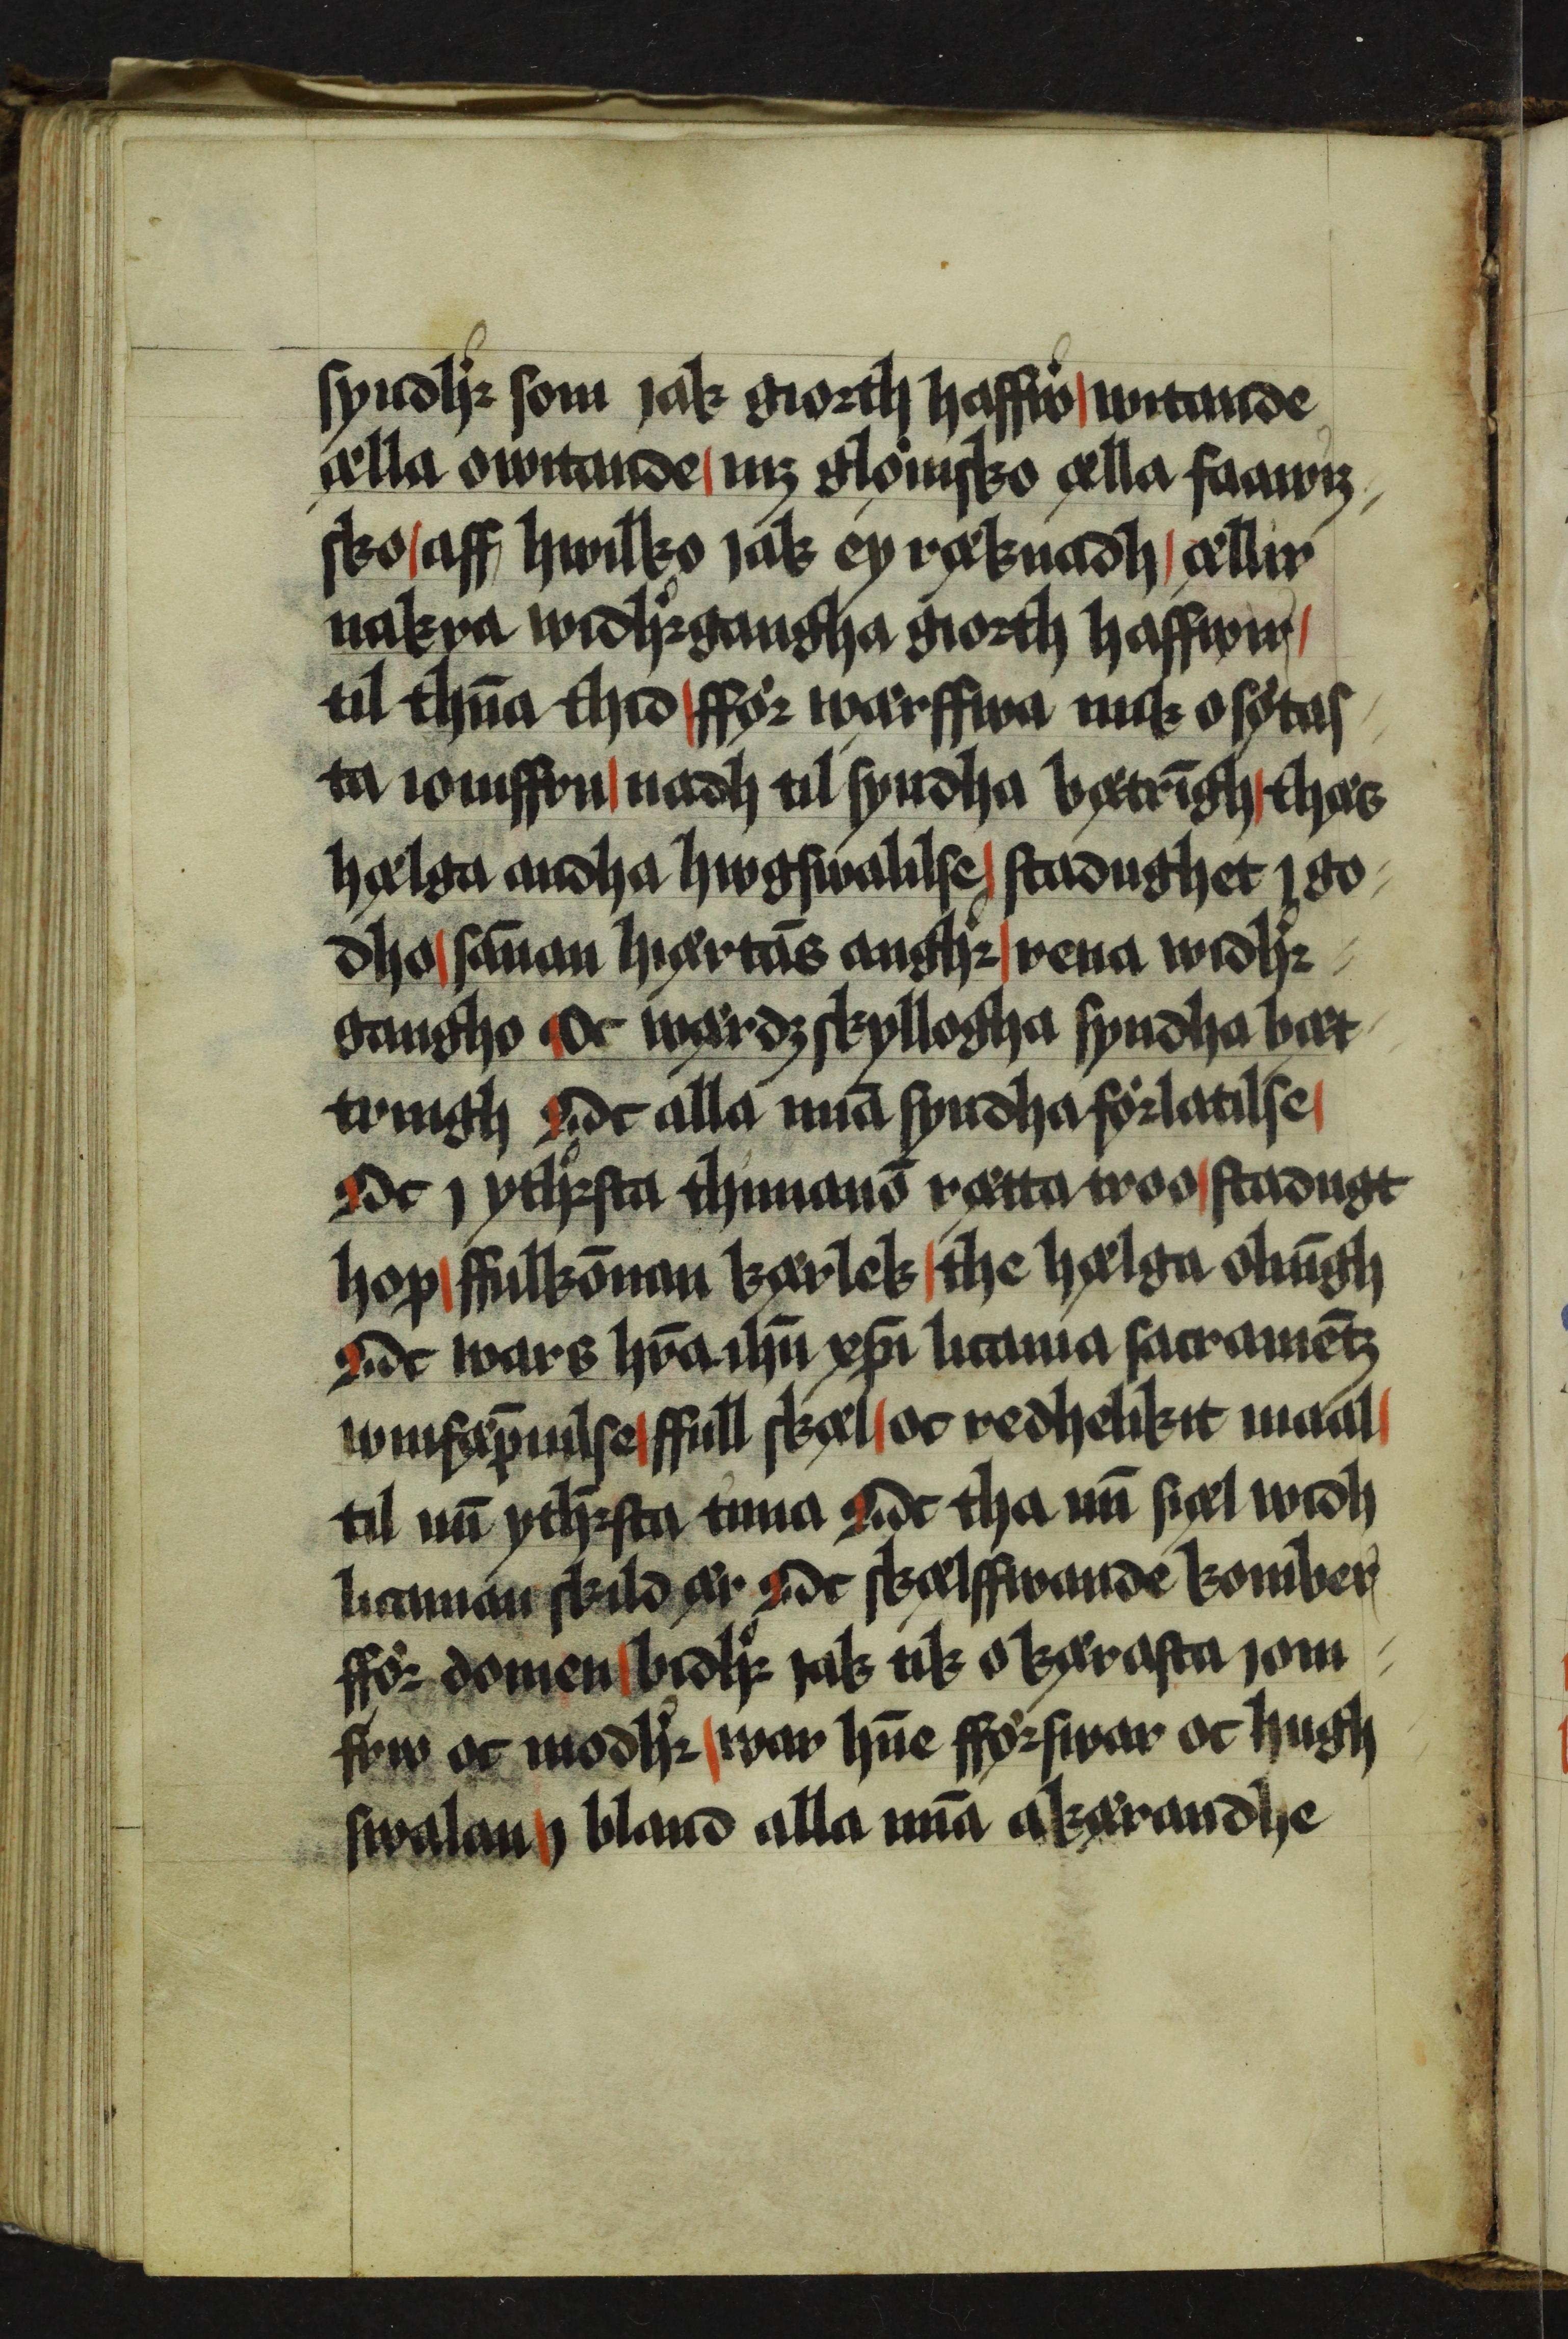 syndhꝛ som jak giorth haffꝛ | witande
ælla owitande | mꝫ glømsko ælla faawiz
sko | aff hwilko jak ey ræknadh | ællir
nakra widhꝛgangha giorth haffwir |
til thn̄a thid | ffør wærffwa mik o søtas
ta iomffru | nadh til syndha bætrīgh | thæs
hælga andha hwgswalilse | stadughet j go
dho | sān̄an hiærtās anghꝛ | rena widhꝛ
gangho Oc wærdzskyllogha syndha bæt
tringh Oc alla mīa syndha førlatilse |
Oc j ythꝛsta thimanō rætta troo | stadugt
hop | ffulkōnan kærlek | the hælga olīngh
Oc wars hr̄a ihū xp̄i licama sacramētz
wnfap̄nilse | ffull skæl | oc redhelikit maal |
til mī ythꝛsta tima Oc tha mī siæl widh
licaman skild ær Oc skælffwande komber
ffør domen | bidhꝛ jak tik o kærasta iom
frw oc modhꝛ | war hn̄e fførswar oc hugh
swalan j bland alla mīa akærandhe